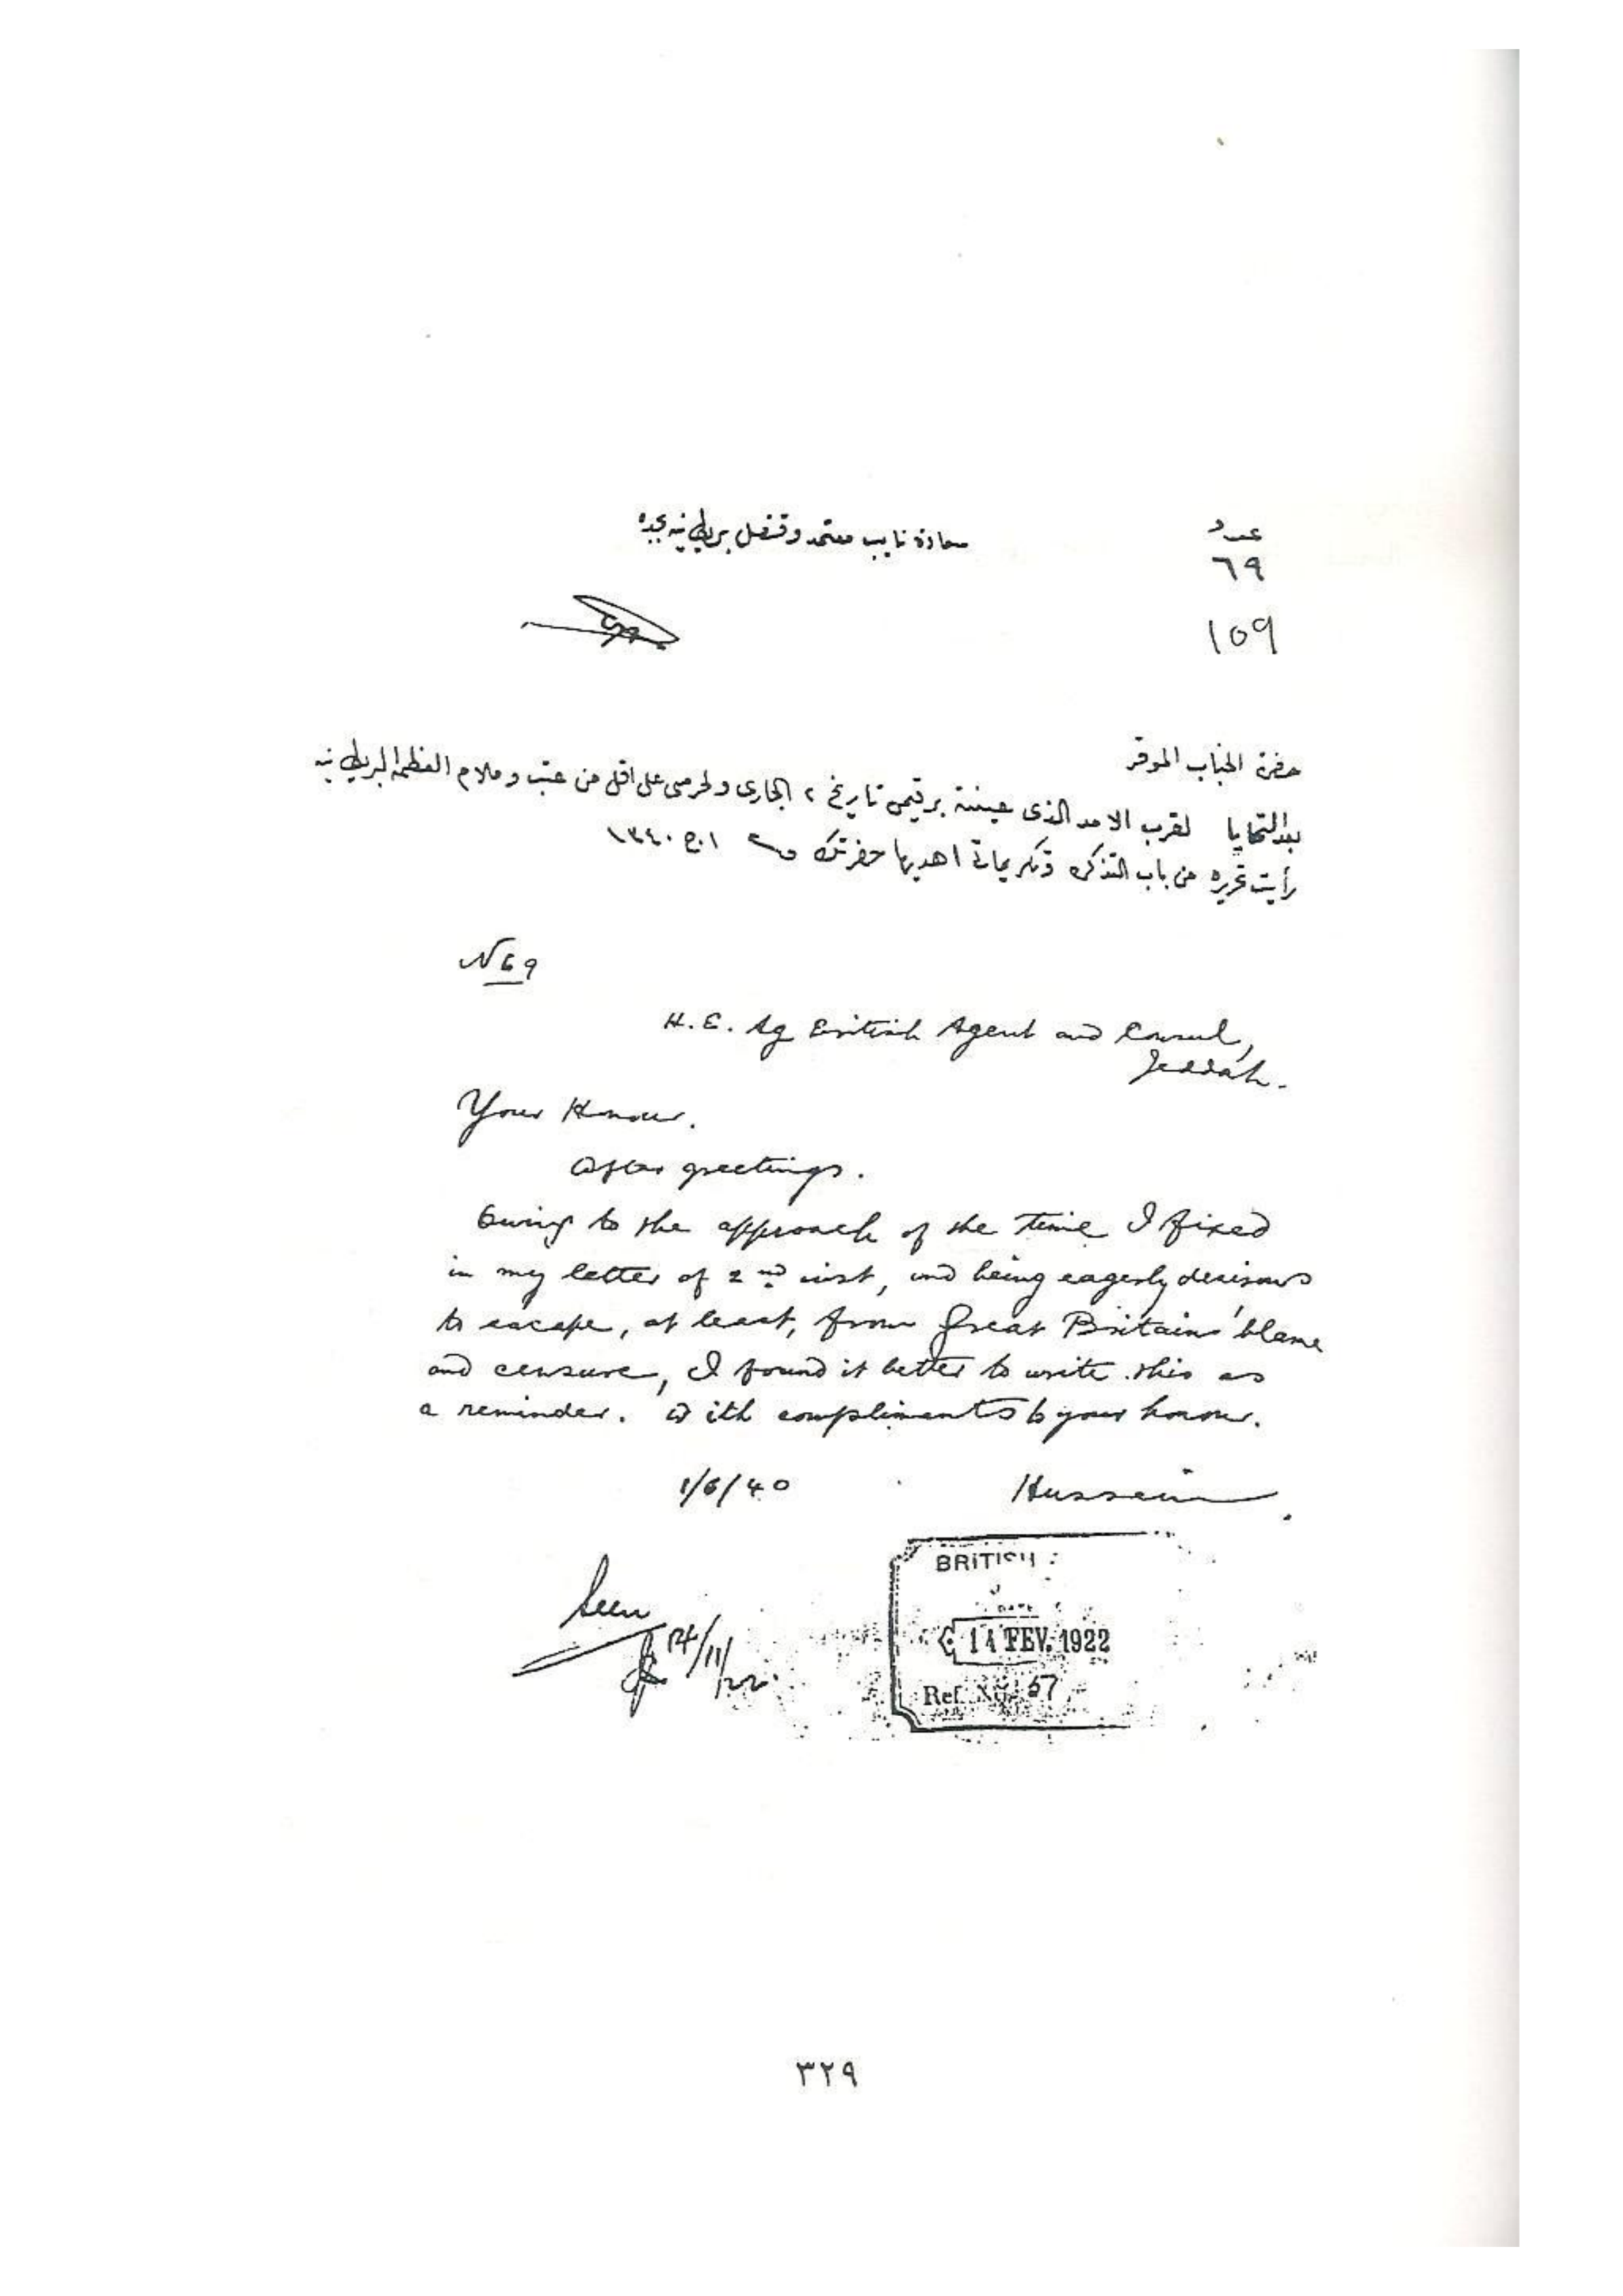 عدد
سعادة نايب معتمد وقنصل بريطانيه بجده
٦٩
109
حضرة الجناب الموقر
بعد التحايا لقرب الامد الذى عينته برقيمى تاريخ ٢ الجارى ولحرصى على اقل من عتب وملام العظمة البريطانيه
رأيت تحريره من باب التذكره وتكريماتى اهديها حضرتك ١ ج ١٣٤٠
N 69
H. E. Ag British Agent and Consul,
Jeddah.
Your Honour.
After greetings.
Owing to the approach of the time I fixed
in my letter of 2nd inst, and being eagerly desirous
to escape, at least, from Great Britains' blame
and censure, I found it better to write this as
a reminder. With compliments to your honour.
1/6/40 Hussein
Seen
14/11/22
BRITISH
DATE
14 FEV. 1922
Ref. No. 57
٣٢٩